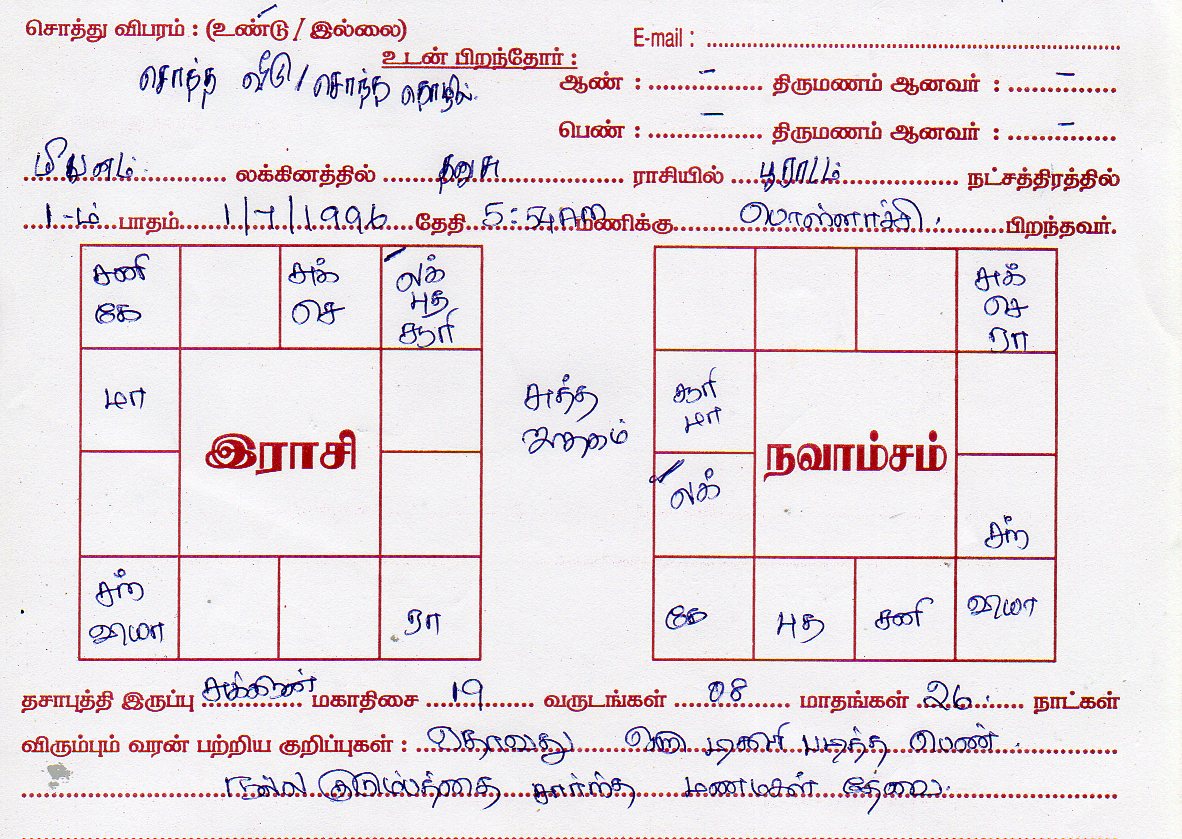 சொத்து விபரம் : (உண்டு / இல்லை)
E-mail : ....................
உடன் பிறந்தோர் :
சொந்த வீடு / சொந்த தொழில்.
ஆண் : - திருமணம் ஆனவர் : -
பெண் : - திருமணம் ஆனவர் : -
மிதுனம் லக்கினத்தில் தனுசு ராசியில் பூராடம் நட்சத்திரத்தில்
1-ம் பாதம் 1/7/1996 தேதி 5:54AM மணிக்கு பொள்ளாச்சி பிறந்தவர்.
சனி
கே
சுக்
செ
லக்
புத
சூரி
மா
இராசி
சந்
வியா
ரா
சுத்த
ஜாதகம்
சுக்
செ
ரா
சூரி
மா
லக்
நவாம்சம்
சந்
கே
புத
சனி
வியா
தசாபுத்தி இருப்பு சுக்கிரன் மகாதிசை 19 வருடங்கள் 08 மாதங்கள் 26 நாட்கள்
விரும்பும் வரன் பற்றிய குறிப்புகள் : ஏதாவது ஒரு டிகிரி படித்த பெண்
நல்ல குடும்பத்தை சார்ந்த மணமகள் தேவை.